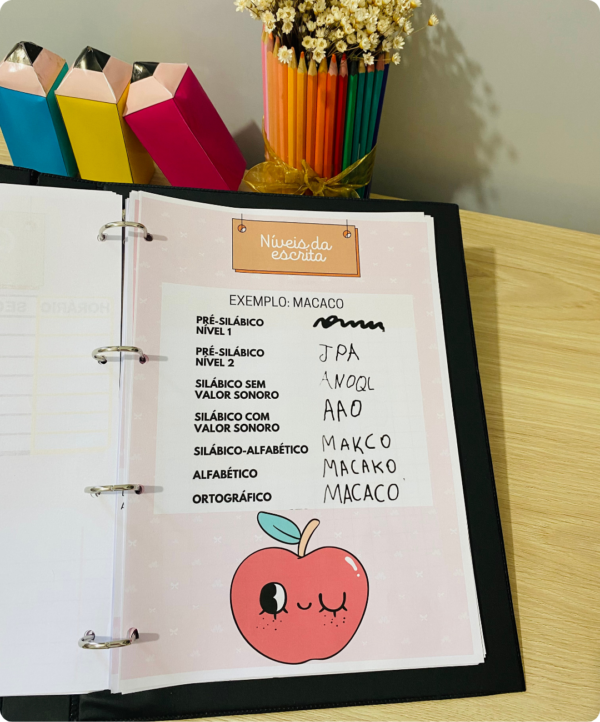 Níveis da
escrita
EXEMPLO: MACACO
PRÉ-SILÁBICO
NÍVEL 1
PRÉ-SILÁBICO JPA
NÍVEL 2
SILÁBICO SEM ANOQL
VALOR SONORO
SILÁBICO COM AAO
VALOR SONORO
SILÁBICO-ALFABÉTICO MAKCO
ALFABÉTICO MACAKO
ORTOGRÁFICO MACACO